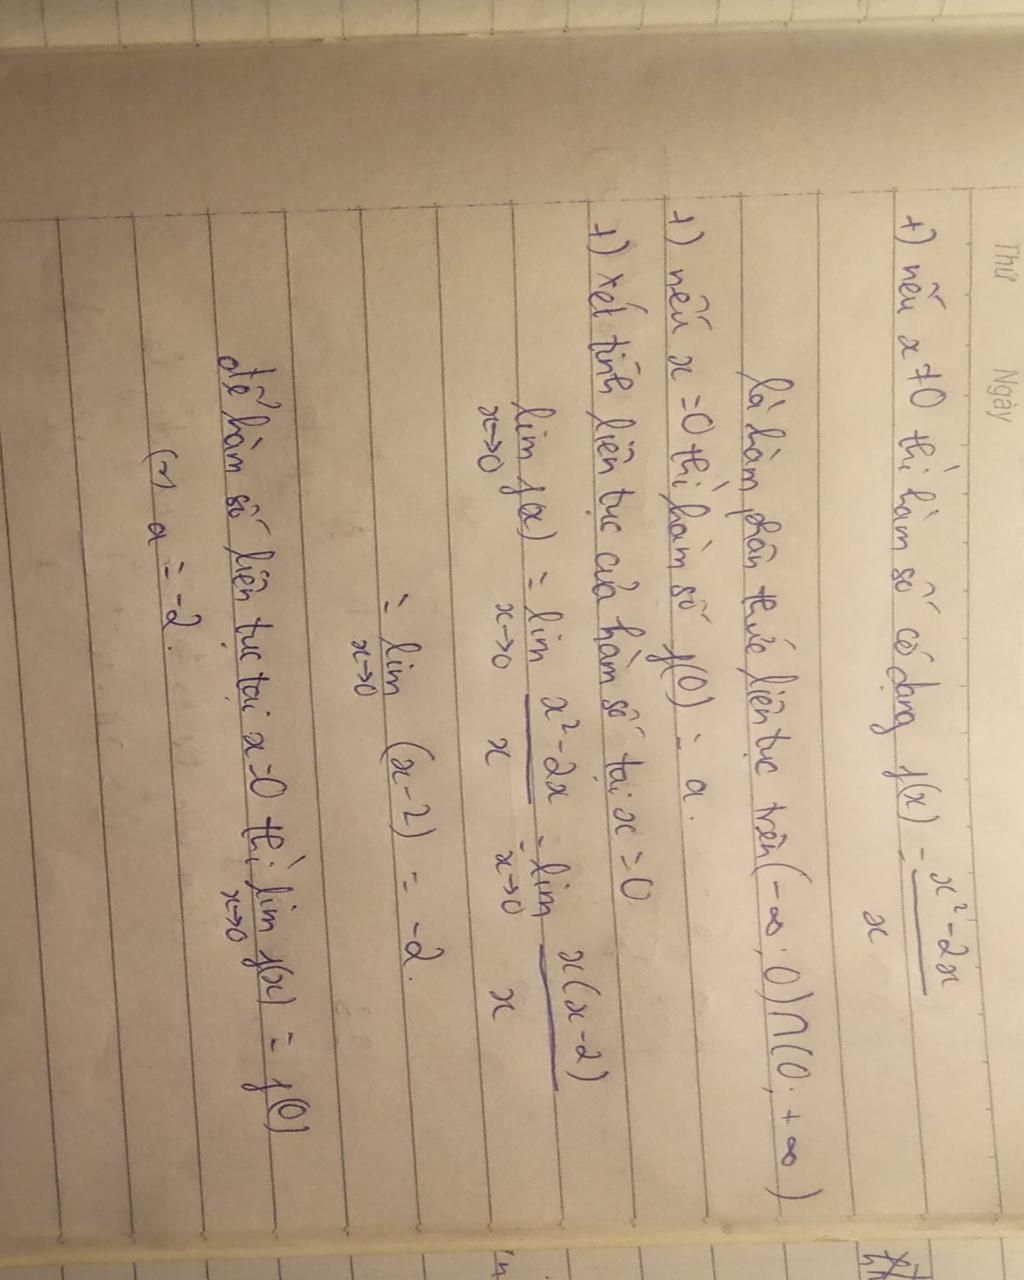 Thứ
Ngày
+) nếu x ≠ 0 thì hàm số có dạng f(x) = x² - 2x / x
là hàm phân thức liên tục trên (-∞; 0) ∩ (0; +∞)
+) nếu x = 0 thì hàm số f(0) = a.
+) xét tính liên tục của hàm số tại x = 0
lim x→0 f(x) = lim x→0 x² - 2x / x = lim x→0 x(x-2) / x
= lim x→0 (x-2) = -2.
để hàm số liên tục tại x=0 thì lim x→0 f(x) = f(0)
a = -2.